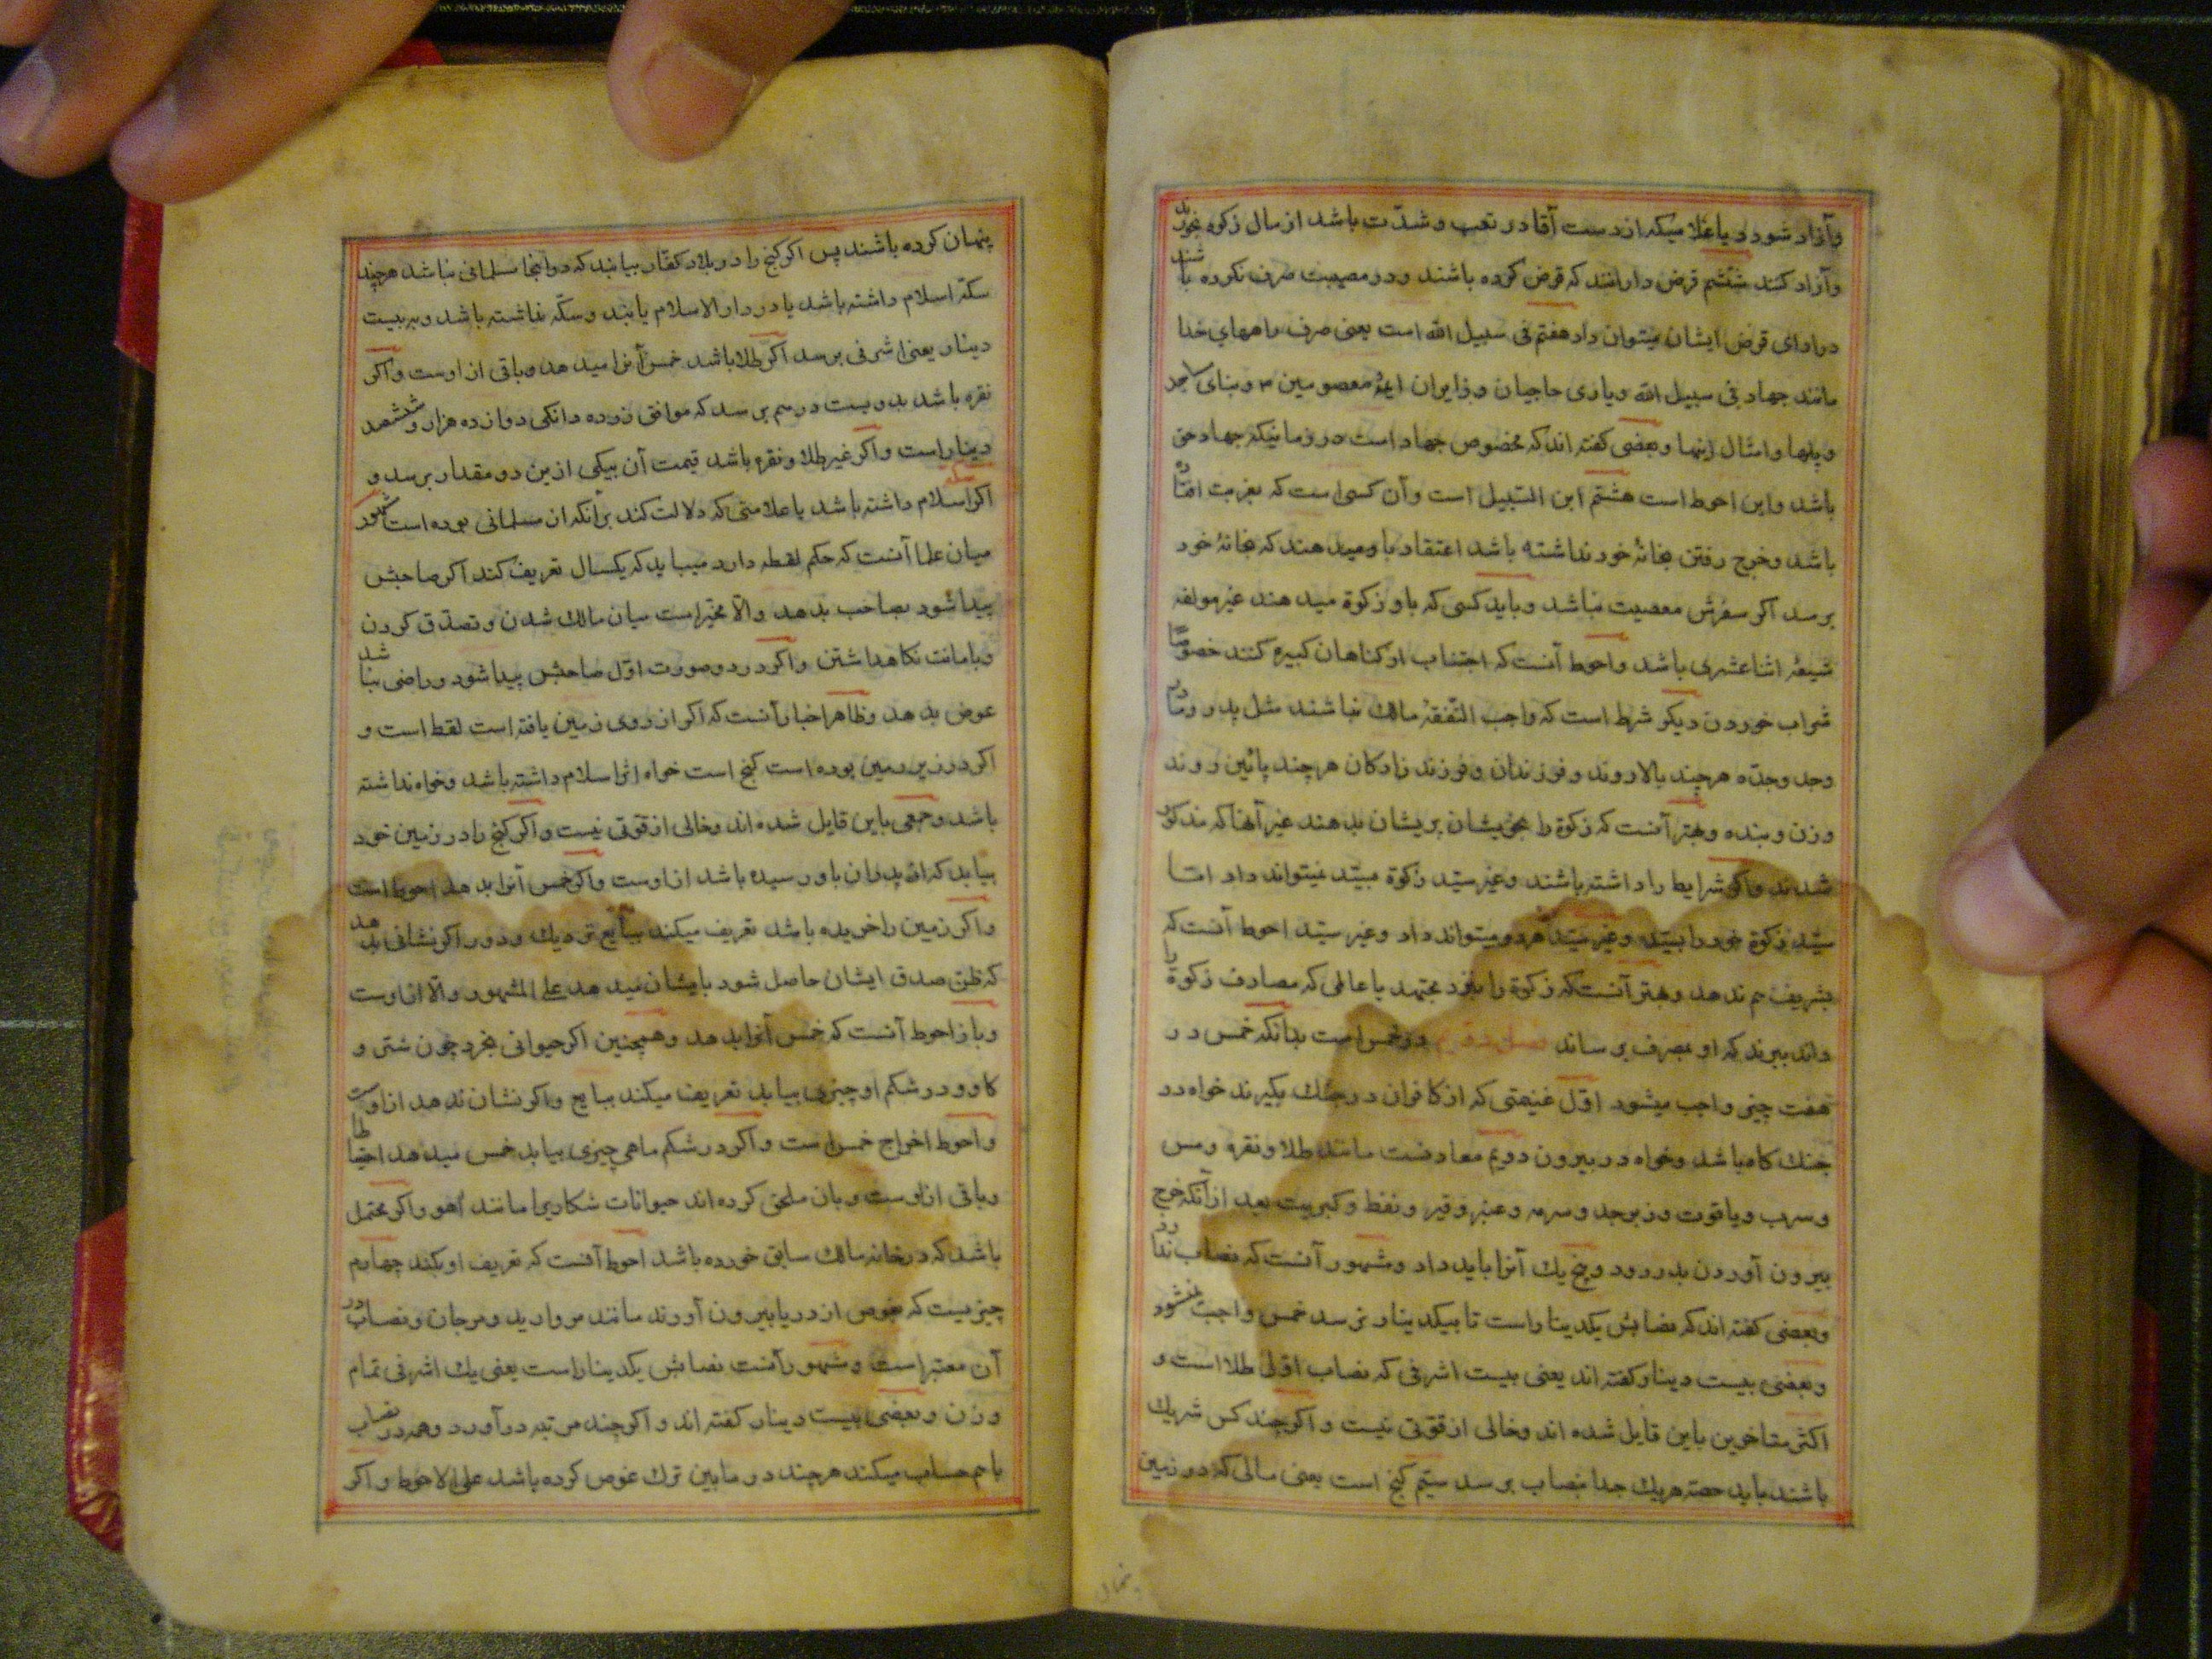 وآزاد شود و یا غلامیکه از دست آقا در تعب و شدّت باشد از مال زکوة بخرند
وآزاد کنند ششم قرض دارانند که قرض کرده باشند و در معصیت صرف نکرده باشند
در ادای قرض ایشان میتوان داد هفتم فی سبیل الله است یعنی صرف راههای خدا
مانند جهاد فی سبیل الله و یاری حاجیان و زایران ائمهٔ معصومین ۳ و بنای مساجد
و پلها و امثال اینها و بعضی کفته اند که مخصوص جهاد است در زمانیکه جهاد حق
باشد و این احوط است هشتم ابن السّبیل است و آن کسی است که بغربت افتاده
باشد و خرج رفتن بخانهٔ خود نداشته باشد اعتقاد باو میدهند که بخانهٔ خود
برسد اکر سفرش معصیت نباشد و باید کسی که باو زکوة میدهند غیر مولفه
شیعهٔ اثنا عشری باشد و احوط آنست که اجتناب از کناهان کبیره کنند خصوصًا
شراب خوردن دیکر شرط است که واجب النّفقهٔ مالک نباشند مثل پدر و مادر
وجد وجدّه هرچند بالا روند و فرزندان و فرزند زادکان هرچند پائین روند
وزن و بنده و بهتر آنست که زکوة را بخویشان پریشان بدهند غیر آنها که مذکور
شدند واکر شرایط را داشته باشند و غیر سیّد زکوة بسیّد نمیتواند داد امّا
سیّد زکوة خود را بسیّد و غیر سیّد هر دو میتواند داد و غیر سیّد احوط آنست که
بشریف هم ندهد و بهتر آنست که زکوة را بنزد مجتهد یا عالمی که مصارف زکوة را
داند ببرند که او بمصرف برساند در خمس است بدانکه خمس در
هفت چیز واجب میشود اوّل غنیمتی که از کافران در جنک بکیرند خواه در
جنک کاه باشد و خواه در بیرون دویم معادنست مانند طلا و نقره و مس
و سرب و یاقوت و زبرجد و سرمه و عنبر و قیر و نفط و کبریت بعد از آنکه خرج
بیرون آوردن بدر رود و پنج یک آنرا باید داد و مشهور آنست که نصاب ندارد
و بعضی کفته اند که نصابش یکدینار است تا بیکدینار نرسد خمس واجب نمیشود
و بعضی بیست دینار کفته اند یعنی بیست اشرفی که نصاب اوّل طلا است و
اکثر متاخرین باین قایل شده اند و خالی از قوّتی نیست و اکر چند کس شریک
باشند باید حصّه هر یک جدا بنصاب برسد سیّم کنج است یعنی مالی که در زمین
پنهان کرده باشند پس اکر کنج را در بلاد کفّار بیابند که در اینجا مسلمانی نباشد هرچند
سکّه اسلام داشته باشد یا در دار الاسلام یابند و سکّه نداشته باشد و به بیست
دینار یعنی اشرفی برسد اکر طلا باشد خمس آنرا میدهد و باقی از اوست و اکر
نقره باشد بدویست درهم برسد که موافق زر ده دانکی دوازده هزار و ششصد
دینار است و اکر غیر طلا و نقره باشد قیمت آن بیکی ازین دو مقدار برسد و
اکر سکه اسلام داشته باشد یا علامتی که دلالت کند بر آنکه از مسلمانی بوده است مشهور
میان علما آنست که حکم لقطه دارد میباید که یکسال تعریف کند اکر صاحبش
پیدا شود بصاحب بدهد و الّا مخیّر است میان مالک شدن و تصدّق کردن
و بامانت نکاهداشتن و اکر در دو صورت اوّل صاحبش پیدا شود و راضی نباشد
عوض بدهد و ظاهر اخبار آنست که اکر از روی زمین یافته است لقطه است و
اکر در زیر زمین بوده است کنج است خواه اثر اسلام داشته باشد و خواه نداشته
باشد و جمعی باین قایل شده اند و خالی از قوّتی نیست و اکر کنج را در زمین خود
بیابد که از پدران باو رسیده باشد از اوست و اکر خمس آنرا بدهد احوط است
و اکر زمین را خریده باشد تعریف میکند ببایع نزدیک و دور اکر نشانی بدهد
که ظنّ صدق ایشان حاصل شود بایشان میدهد علی المشهور و الّا از اوست
و باز احوط آنست که خمس آنرا بدهد و همچنین اکر حیوانی بخرد چون شتر و
کاو و در شکم او چیزی بیابد تعریف میکند ببایع و اکر نشان ندهد از اوست
و احوط اخراج خمس است و اکر در شکم ماهی چیزی بیابد خمس میدهد احتیاطا
و باقی از اوست و بان ملحق کرده اند حیوانات شکاری را مانند آهو و اکر محتمل
باشد که در خانه مالک سابق خورده باشد احوط آنست که تعریف او بکند چهارم
چیزیست که بغوص از دریا بیرون آورند مانند مروارید و مرجان و نصاب در
آن معتبر است و مشهور آنست نصابش یکدینار است یعنی یک اشرفی تمام
وزن و بعضی بیست دینار کفته اند و اکر چند مرتبه در آورد و همه در نصاب
با هم حساب میکند هرچند در مابین ترک غوص کرده باشد علی الاحوط و اکر
پنهان